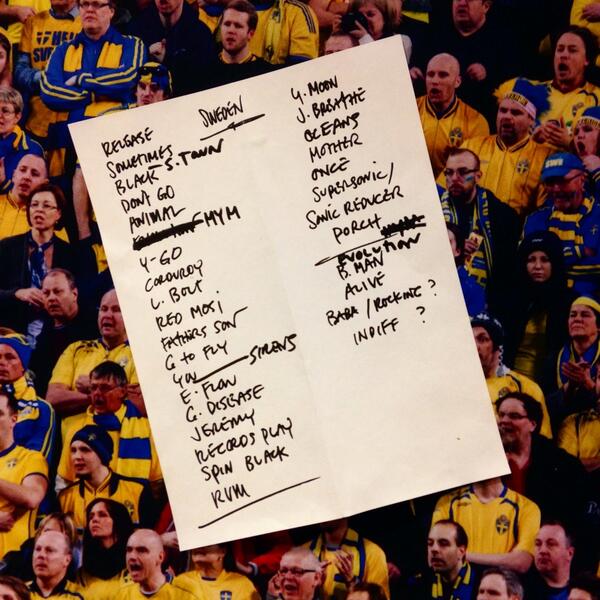 SWEDEN
RELEASE
SOMETIMES
BLACK S. TOWN
DON'T GO
ANIMAL
MYM
Y-GO
CORDUROY
L. BOLT
RED MOSI
FATHERS SON
G TO FLY
YOU SIRENS
E. FLOW
G. DISEASE
JEREMY
RECORDS PLAY
SPIN BLACK
RVM
Y. MOON
J. BREATHE
OCEANS
MOTHER
ONCE
SUPERSONIC/
SONIC REDUCER
PORCH
EVOLUTION
B. MAN
ALIVE
BABA/ROCKING?
INDIFF ?
SWE